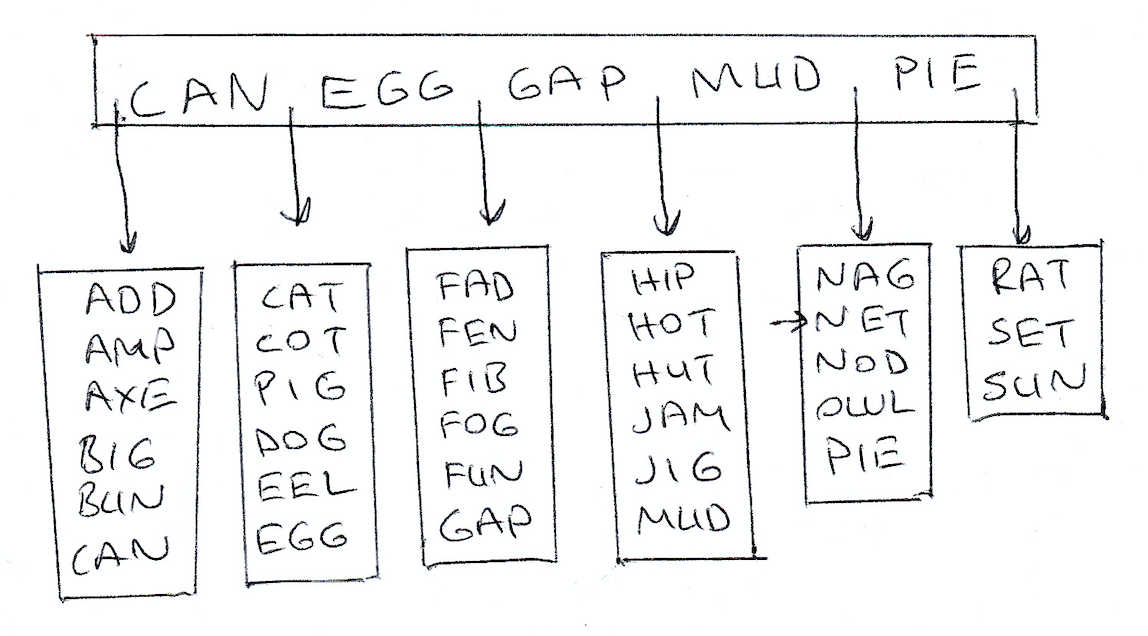 CAN EGG GAP MUD PIE
ADD
AMP
AXE
BIG
BUN
CAN
CAT
COT
PIG
DOG
EEL
EGG
FAD
FEN
FIB
FOG
FUN
GAP
HIP
HOT
HUT
JAM
JIG
MUD
NAG
NET
NOD
OWL
PIE
RAT
SET
SUN